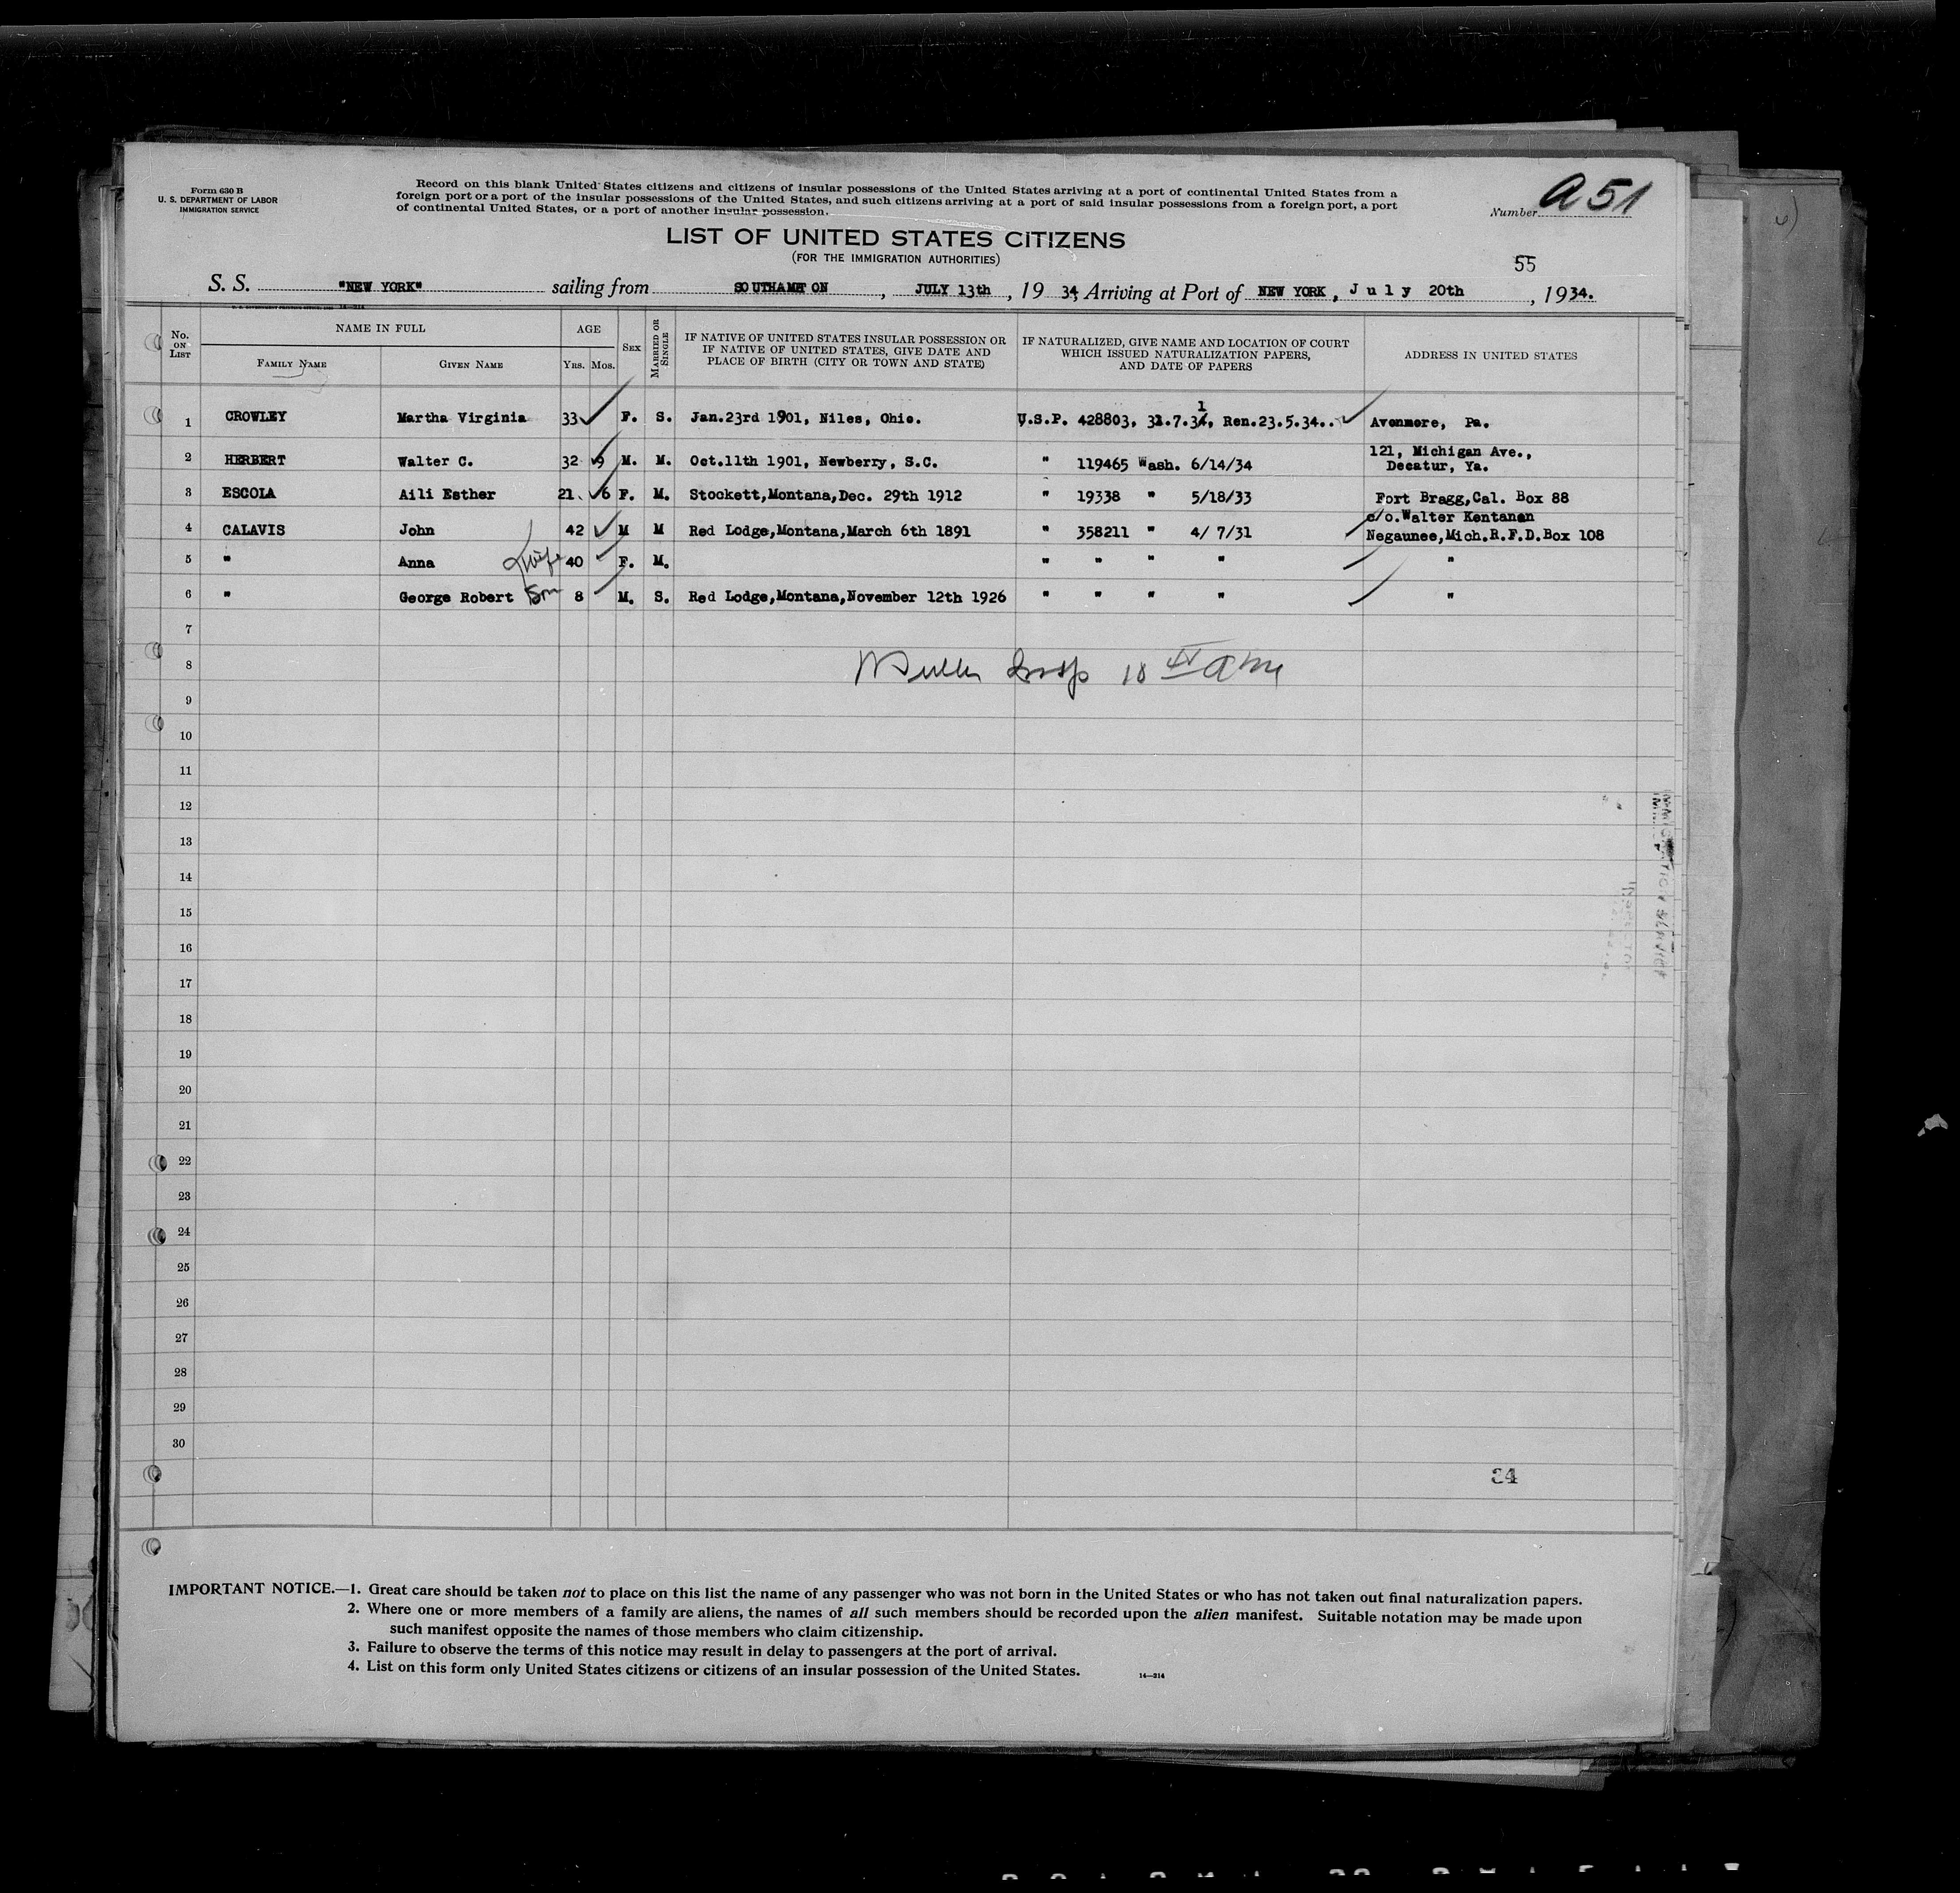 Form 630 B
U. S. DEPARTMENT OF LABOR
IMMIGRATION SERVICE
Record on this blank United States citizens and citizens of insular possessions of the United States arriving at a port of continental United States from a
foreign port or a port of the insular possessions of the United States, and such citizens arriving at a port of said insular possessions from a foreign port, a port
of continental United States, or a port of another insular possession.
Number A51
LIST OF UNITED STATES CITIZENS
(FOR THE IMMIGRATION AUTHORITIES)
55
S. S. "NEW YORK" sailing from SOUTHAMPTON, JULY 13th, 1934, Arriving at Port of NEW YORK, July 20th, 1934.
No. ON LIST
NAME IN FULL
FAMILY NAME
GIVEN NAME
AGE
YRS. MOS.
SEX
MARRIED OR SINGLE
IF NATIVE OF UNITED STATES INSULAR POSSESSION OR
IF NATIVE OF UNITED STATES, GIVE DATE AND
PLACE OF BIRTH (CITY OR TOWN AND STATE)
IF NATURALIZED, GIVE NAME AND LOCATION OF COURT
WHICH ISSUED NATURALIZATION PAPERS,
AND DATE OF PAPERS
ADDRESS IN UNITED STATES
1 CROWLEY Martha Virginia 33 F. S. Jan.23rd 1901, Niles, Ohio. U.S.P. 428803, Ren.23.5.34.. Avonmore, Pa.
2 HERBERT Walter C. 32 9 M. M. Oct.11th 1901, Newberry, S.C. " 119465 Wash. 6/14/34 121, Michigan Ave.,
Decatur, Ya.
3 ESCOLA Aili Esther 21. 6 F. M. Stockett,Montana,Dec. 29th 1912 " 19338 " 5/18/33 Fort Bragg,Cal. Box 88
4 CALAVIS John 42 M M Red Lodge,Montana,March 6th 1891 " 358211 " 4/ 7/31 c/o.Walter Kentanen
Negaunee,Mich.R.F.D.Box 108
5 " Anna wife 40 F. M. " " " " "
6 " George Robert Son 8 M. S. Red Lodge,Montana,November 12th 1926 " " " " "
7
8
9
10
11
12
13
14
15
16
17
18
19
20
21
22
23
24
25
26
27
28
29
30
34
IMPORTANT NOTICE.—1. Great care should be taken not to place on this list the name of any passenger who was not born in the United States or who has not taken out final naturalization papers.
2. Where one or more members of a family are aliens, the names of all such members should be recorded upon the alien manifest. Suitable notation may be made upon
such manifest opposite the names of those members who claim citizenship.
3. Failure to observe the terms of this notice may result in delay to passengers at the port of arrival.
4. List on this form only United States citizens or citizens of an insular possession of the United States.
14—314